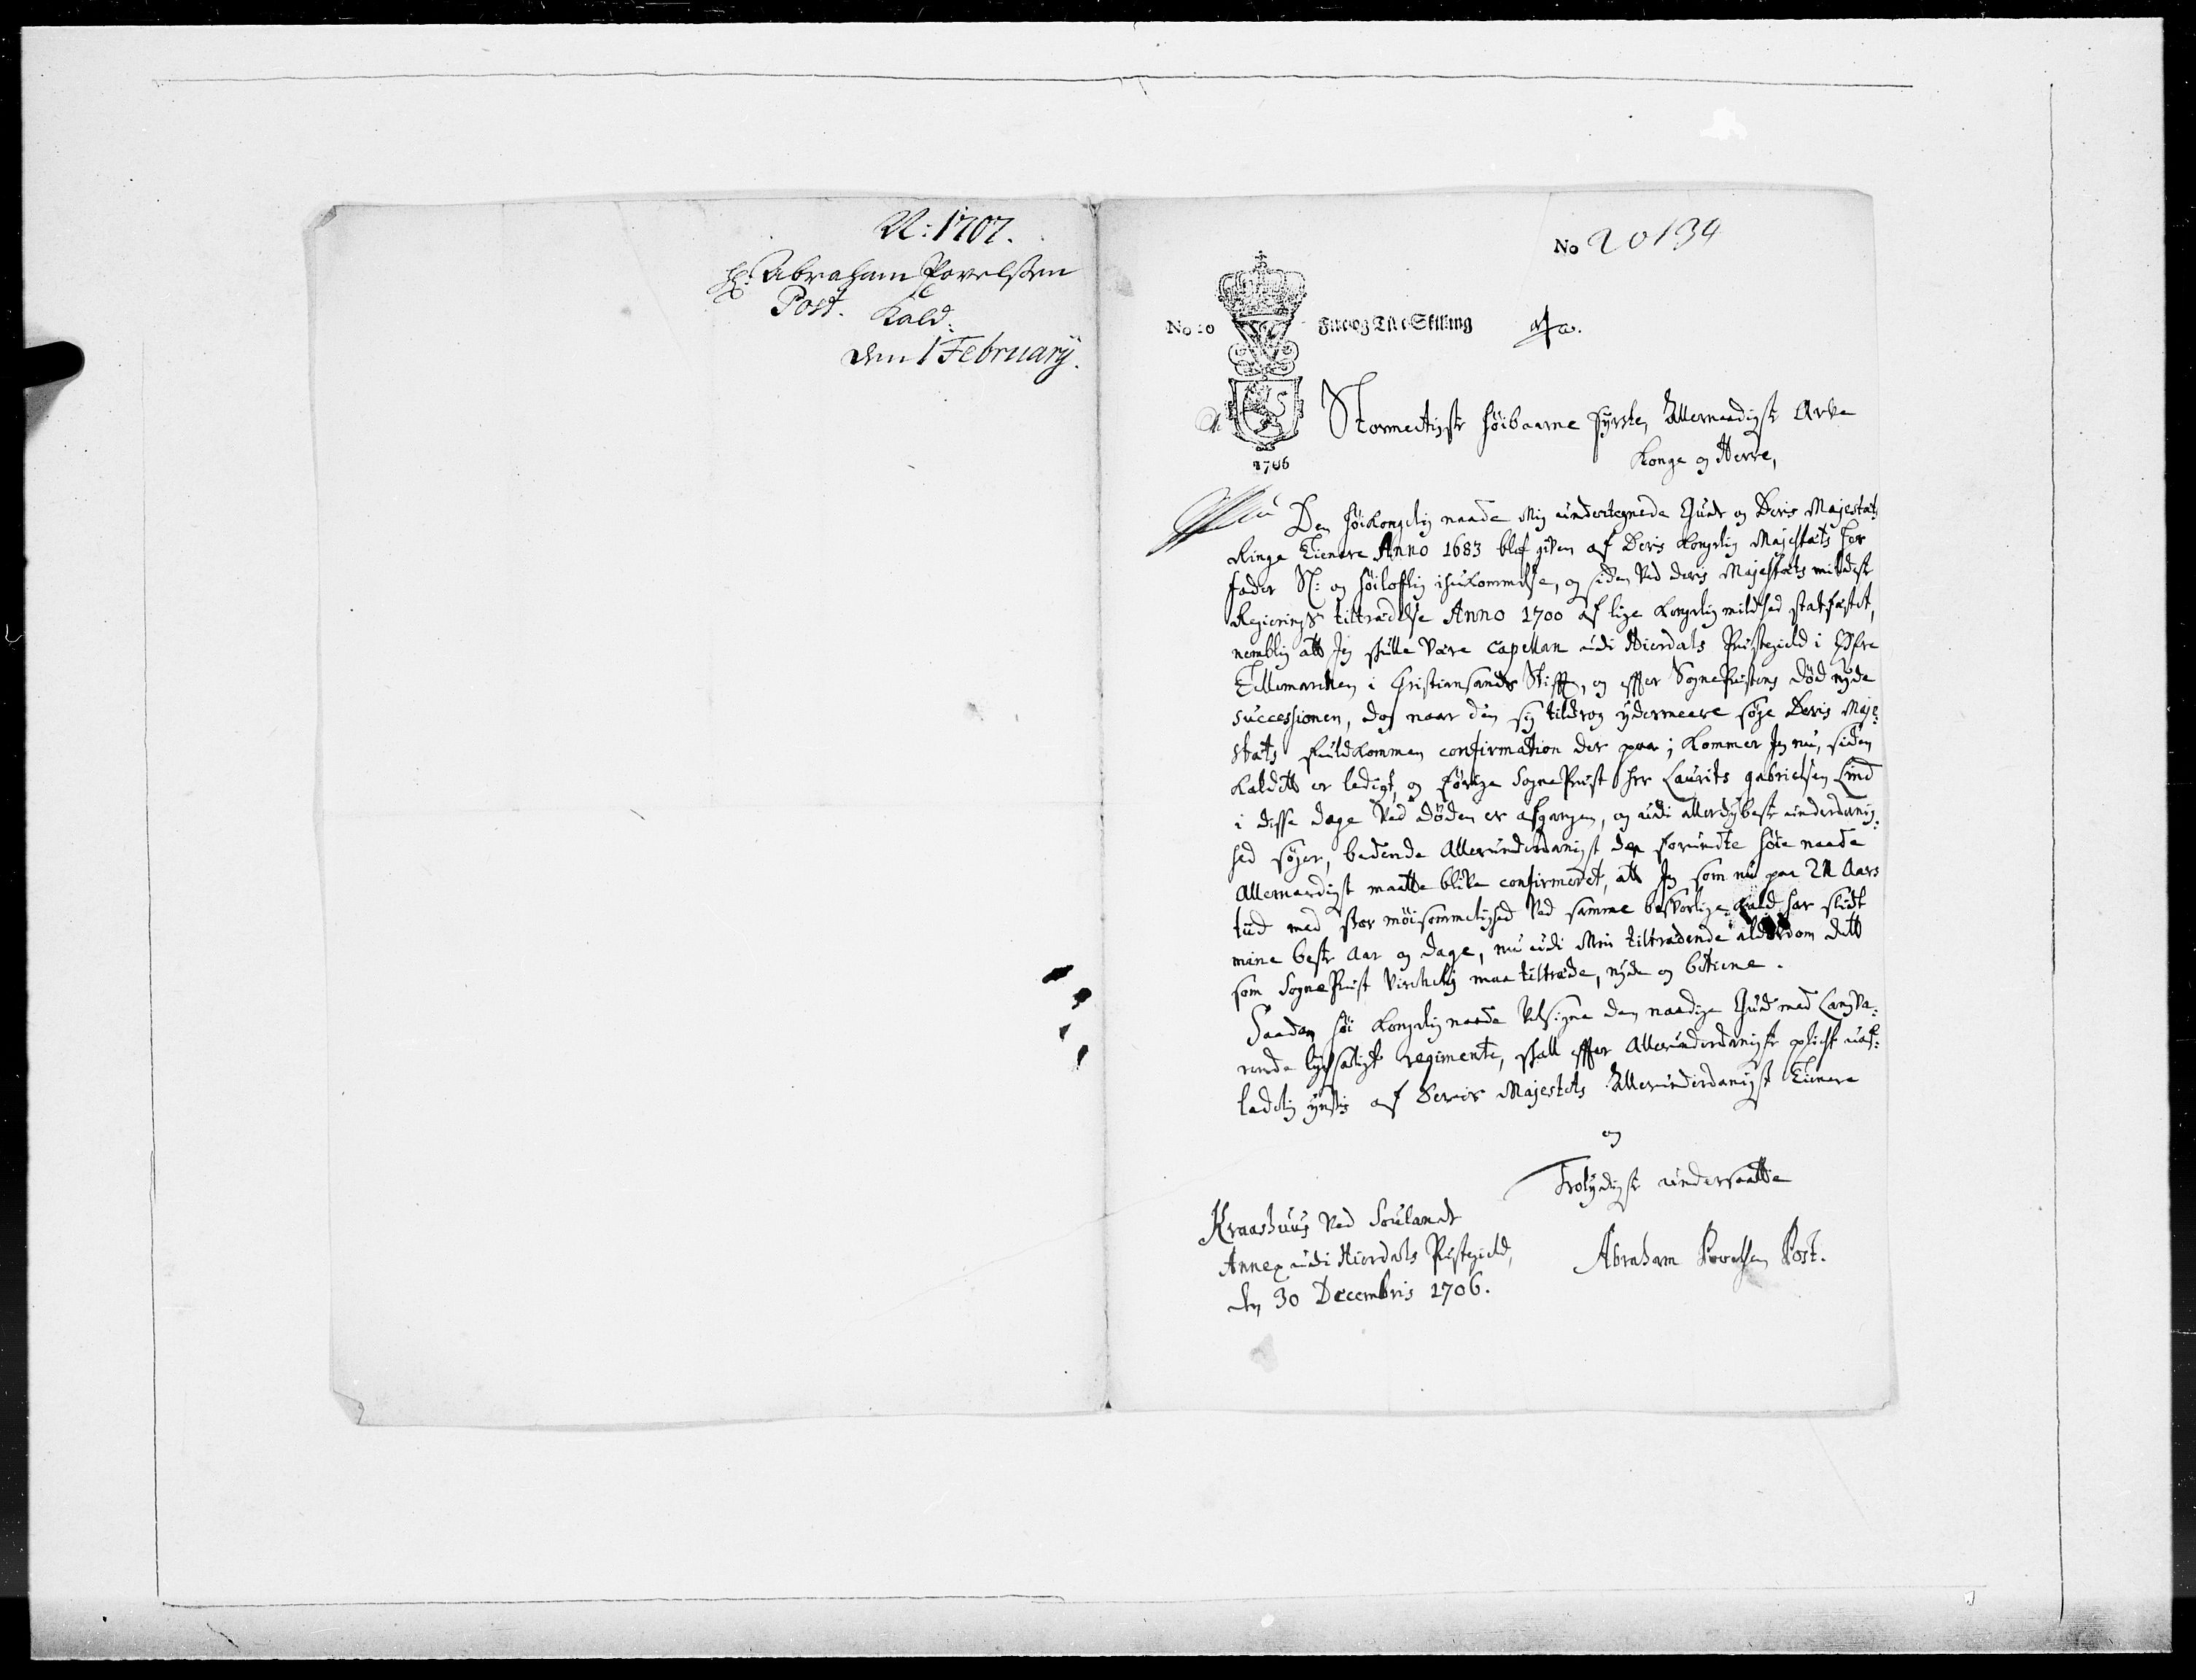 A: 1707.
Hr: Abraham Povelssen
Post. Kald.
den 1 February.
No 20134
No 10
Fire og Tive Skilling
1706
Stormectigste Høibaarne Fyrste, Allernaadigste Arve
Konge og Herre,
Den Høikongelig naade Mig undertegnede Guds og Deris Majestæts
Ringe Tienere Anno 1683 blef given af Deris Kongelig Majestæts Her
Fader S: og Høilofflig ihukommelse, og siden ved deris Majestæts mildeste
Regierings tiltrædelse Anno 1700 af lige Kongelig mildhed stadfæstet,
nemblig att Jeg skulle være Capellan udi Hierdals Præstegield i Øfre
Tellemarcken i Christiansands Stifft, og effter SognePræstens død nyde
successionen, dog naar den sig tildrog ydermeere søge Deris Maje-
stæts fuldkommen confirmation der paa; Kommer Jeg nu, siden
Kaldett er ledigt, og forige SognePræst Her Laurits Gabrielsen Lind
i disse dage ved døden er afgangen, og udi allerdybeste underdanig-
hed søger, bedende Allerunderdanigst den forundte høie naade
Allernaadigst maatte blive confirmeret, att Jeg som nu paa 24 Aars
tiid med stor møisommelighed ved samme besværlige Kald har slidt
mine beste Aar og dage, nu udi Min tiltrædende alderdom dett
som SognePræst virckelig maa tiltræde, nyde og betiene.
Saadan Høi Kongelig naade velsigne den naadige Gud med Langva-
rende lycksaligt regimente, skall effter Allerunderdanigste plicht uaf-
ladelig ynskis af Deris Majestets Allerunderdanigst Tienere
og
Trolydigste undersaatte
Kraashuus ved Soulandt
Annex udi Hierdals Præstegield,
den 30 Decembris 1706.
Abraham Povelsen Post.